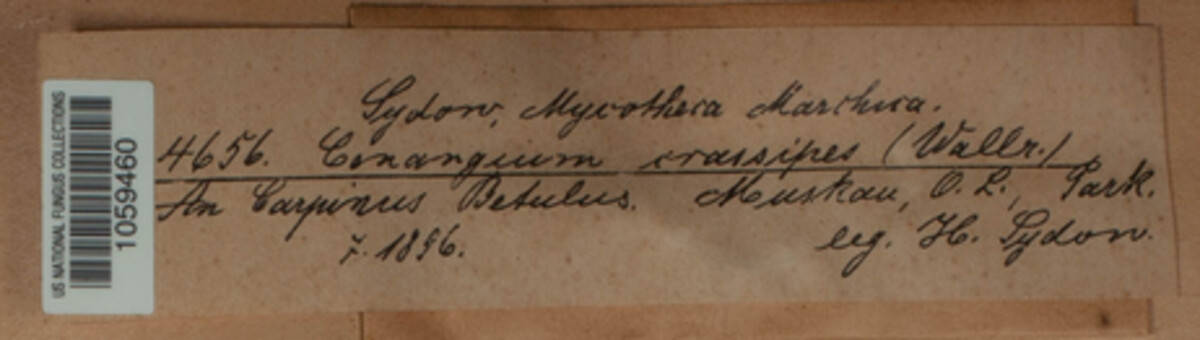 US NATIONAL FUNGUS COLLECTIONS
01059460
Sydow, Mycotheca Marchica.
4656. Cenangium crassipes (Wallr.)
An Carpinus Betulus. Muskau, O. L., Park.
7. 1896. leg. H. Sydow.